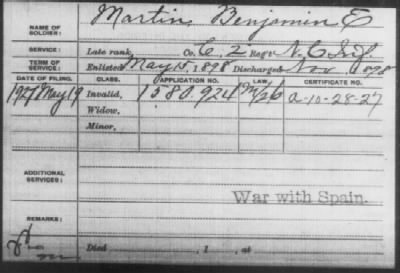 NAME OF SOLDIER: Martin Benjamin E
SERVICE: Late rank, Co. C, 2 Reg't N. C. Inf.
TERM OF SERVICE: Enlisted May 15, 1898 Discharged Nov , 1898
DATE OF FILING. CLASS. APPLICATION NO. LAW. CERTIFICATE NO.
1927 May 19 Invalid, 1580.924 M/26 a-10-28-27
Widow,
Minor,
ADDITIONAL SERVICES:
War with Spain.
REMARKS:
Died , 1 , at